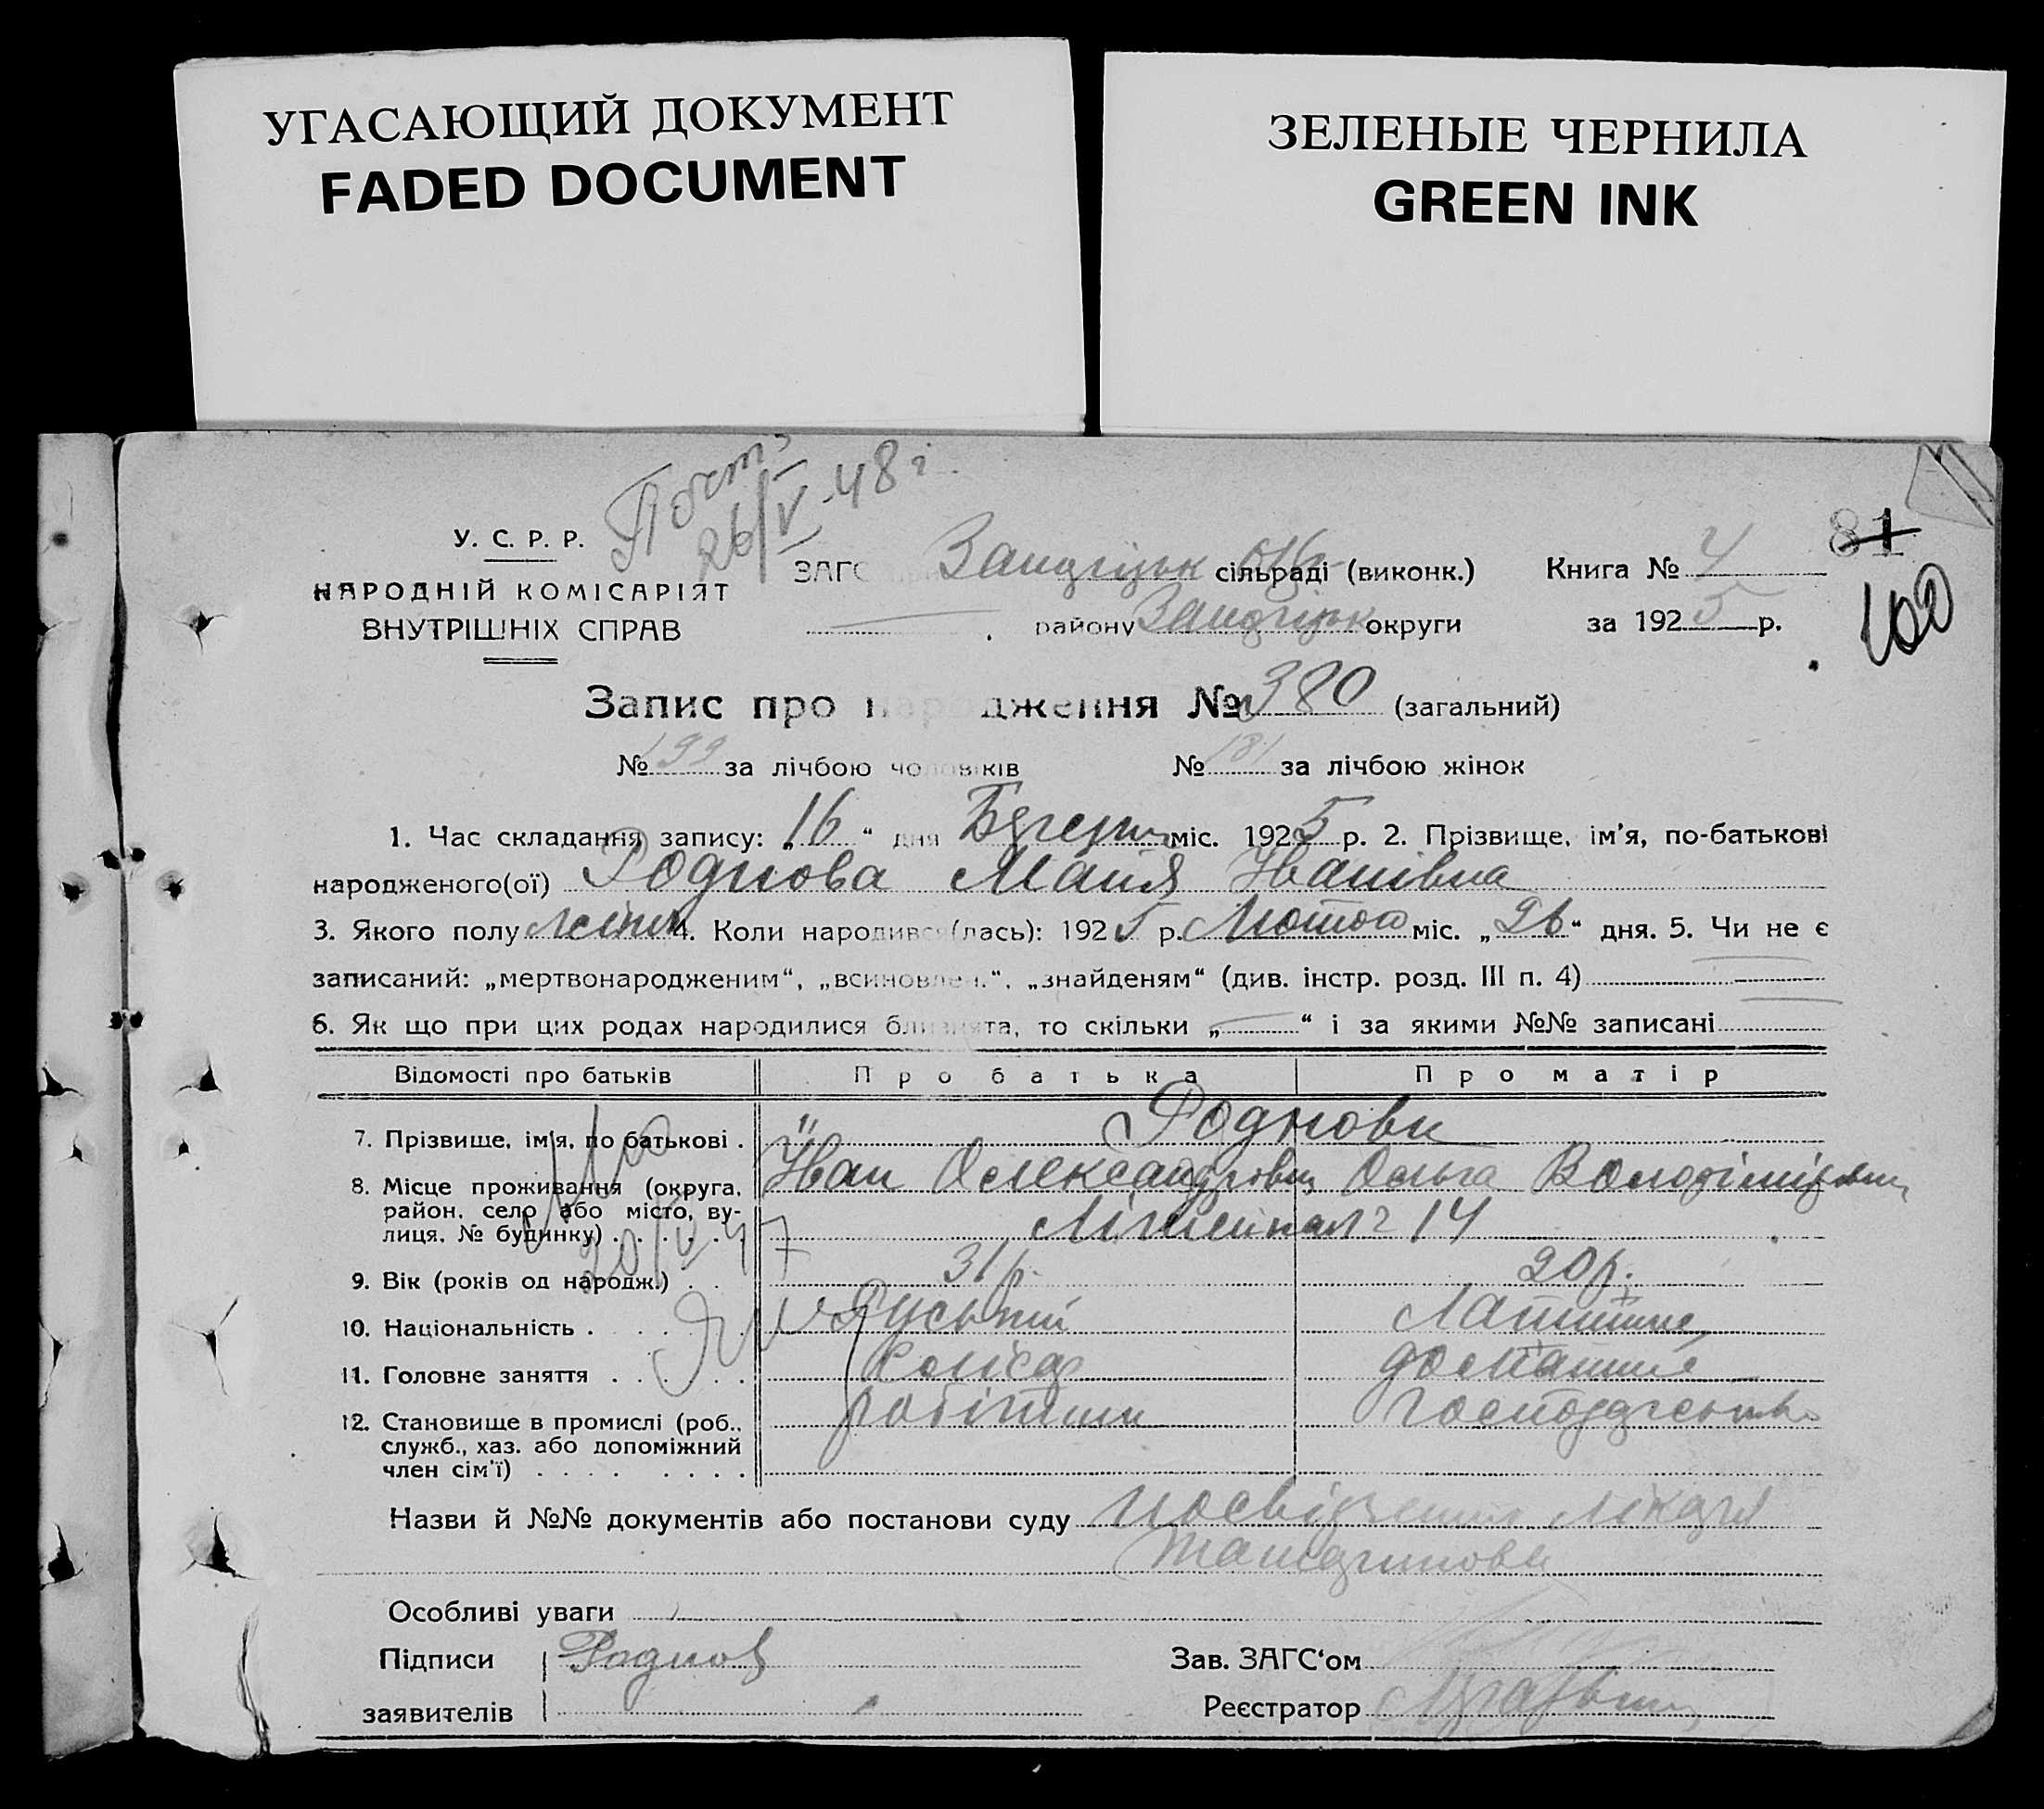 УГАСАЮЩИЙ ДОКУМЕНТ
FADED DOCUMENT
ЗЕЛЕНЫЕ ЧЕРНИЛА
GREEN INK
26/V-48 г.
81
100
У. С. Р. Р.
НАРОДНІЙ КОМІСАРІЯТ
ВНУТРІШНІХ СПРАВ
ЗАГС сільраді (виконк.) Книга № 4
району округи за 1925 р.
Запис про народження № 380 (загальний)
№ 199 за лічбою чоловіків № 181 за лічбою жінок
1. Час складання запису: „16“ дня Березня міс. 1925 р. 2. Прізвище, ім'я, по-батькові
народженого(ої) Роднова Майя Іванівна
3. Якого полу жіноч 4. Коли народився(лась): 1925 р. Лютого міс. „26“ дня. 5. Чи не є
записаний: „мертвонародженим“, „всиновлен.“, „знайденям“ (див. інстр. розд. III п. 4)
6. Як що при цих родах народилися близнята, то скільки „ “ і за якими №№ записані
Відомості про батьків Про батька Про матір
7. Прізвище, ім'я, по батькові . Роднови
Иван Олександрович Ольга Володіміровна
8. Місце проживання (округа,
район, село або місто, ву-
лиця, № будинку) . . . . . . 14
9. Вік (років од народж.) . . 31 р. 20 р.
10. Національність . . . . . . Руський
11. Головне заняття . . . . . . домашнє
12. Становище в промислі (роб.,
служб., хаз. або допоміжний
член сім'ї) . . . . . . . . робітник господарство
Назви й №№ документів або постанови суду посвідчення лікаря
Особливі уваги
Підписи Роднов Зав. ЗАГС'ом
заявителів Реєстратор